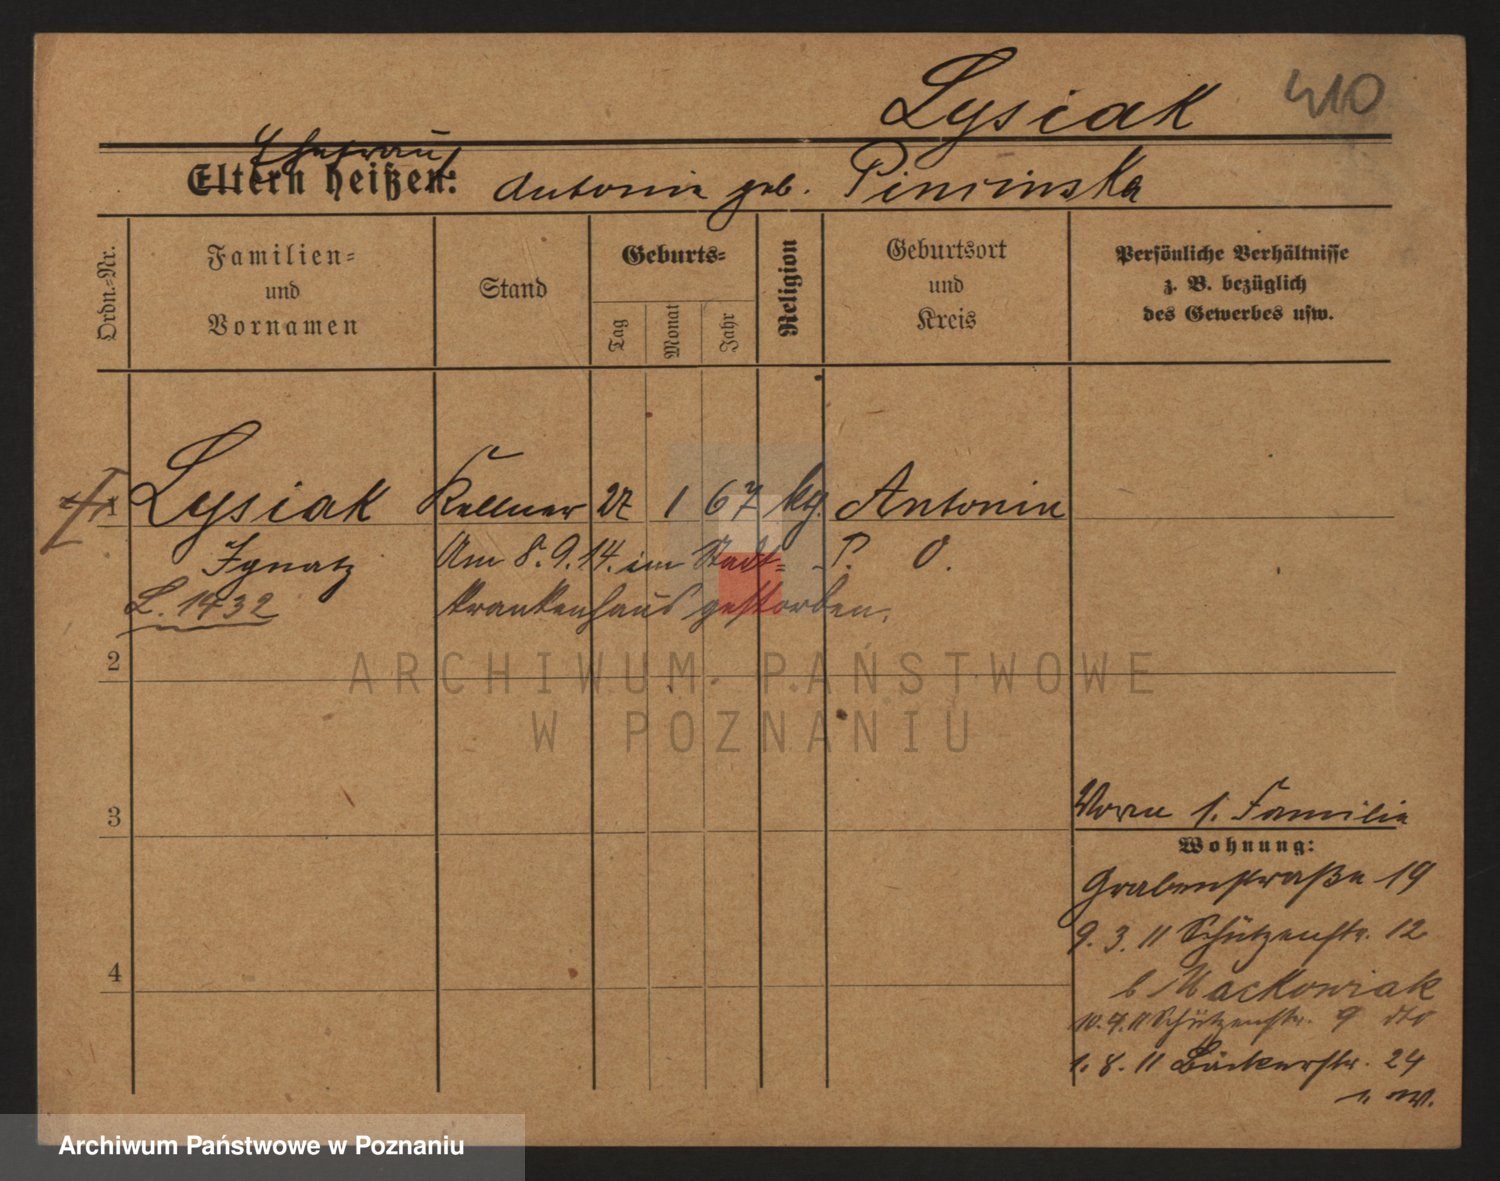 Lysiak 410
Ehefrau
Eltern heißen: Antonie geb.
Ordn.-Nr.
Familien-
und
Vornamen
Stand
Geburts-
Tag
Monat
Jahr
Religion
Geburtsort
und
Kreis
Persönliche Verhältnisse
z. B. bezüglich
des Gewerbes usw.
1 Lysiak Kellner 27 1 67 kg. Antonin
Ignatz Am 8.9.14. im Stadt- P. O.
L. 1432 krankenhaus gestorben.
2
ARCHIWUM PAŃSTWOWE
W POZNANIU
3
Vorn 1. Familie
Wohnung:
Grabenstraße 19
9. 3. 11 Schützenstr. 12
b Mackowiak
4
10. 7. 11 Schützenstr. 9 dto
1. 8. 11 Bäckerstr. 24
Archiwum Państwowe w Poznaniu